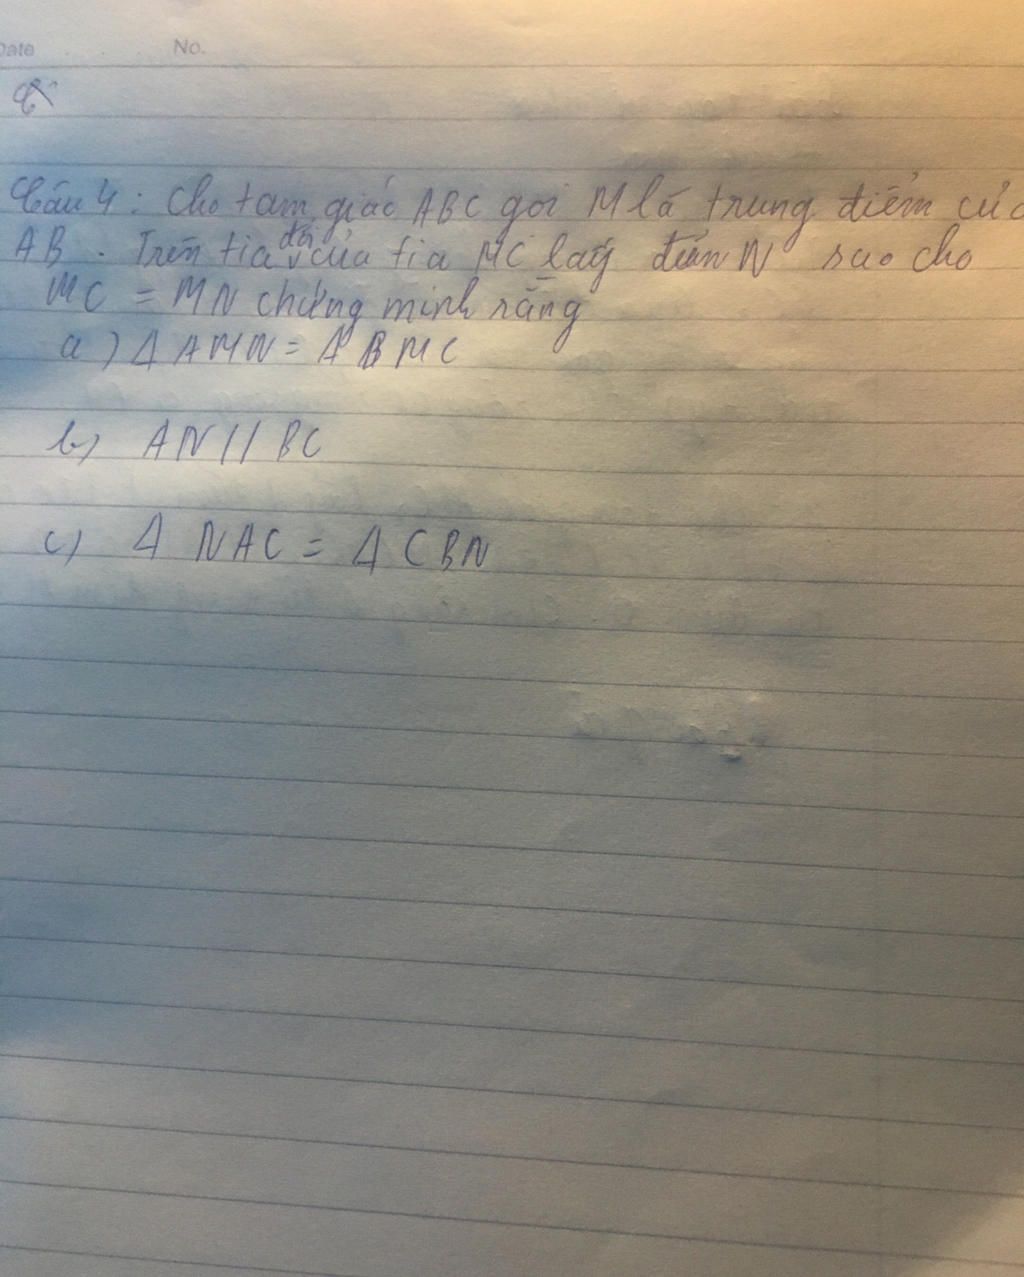 Date No.
Câu 4 : Cho tam giác ABC gọi M là trung điểm củ
AB . Trên tia đối của tia MC lấy điểm N sao cho
MC = MN chứng minh rằng
a) Δ AMN = Δ BMC
b) AN // BC
c) Δ NAC = Δ CBN